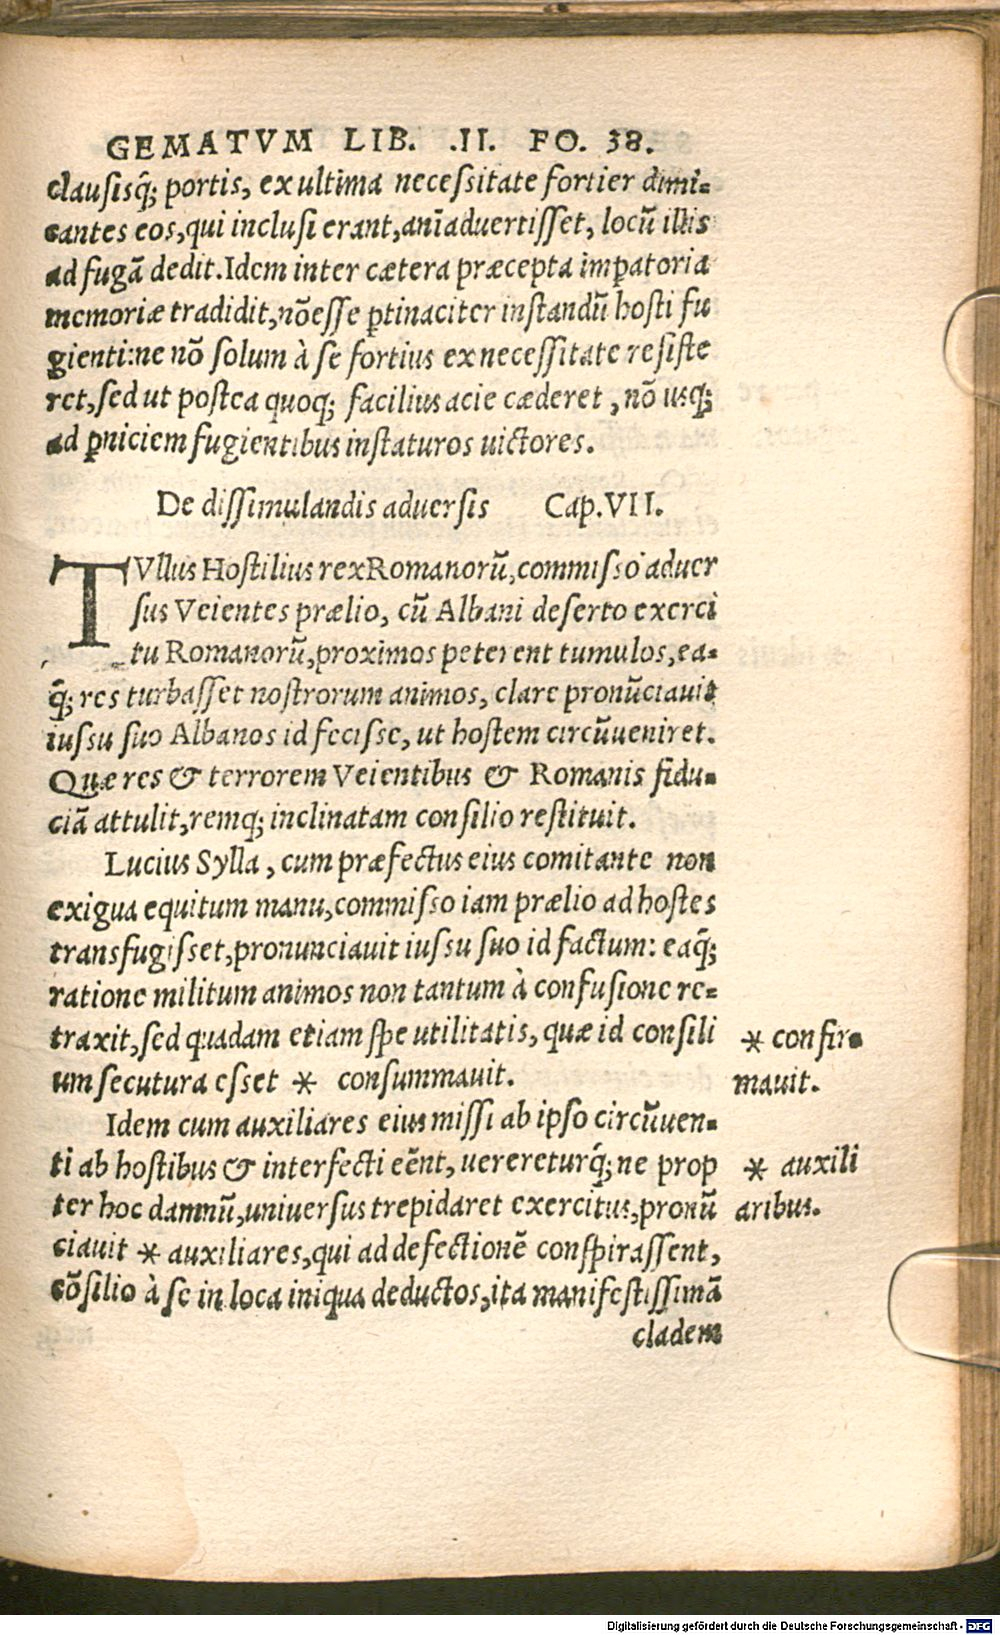 GEMATVM LIB. .II. FO. 38.
clausisq̃; portis, ex ultima necessitate fortier dimi-
cantes eos, qui inclusi erant, anīaduertisset, locū illis
ad fugā dedit. Idem inter cætera præcepta imꝑatoria
memoriæ tradidit, nō esse ꝑtinaciter instandū hosti fu
gienti: ne nō solum à se fortius ex necessitate resiste
ret, sed ut postea quoq; facilius acie cæderet, nō usq;
ad ꝑniciem fugientibus instaturos uictores.
De dissimulandis aduersis Cap. VII.
TVllus Hostilius rex Romanorū, commisso aduer
sus Veientes prælio, cū Albani deserto exerci
tu Romanorū, proximos peterent tumulos, ea-
q̃; res turbasset nostrorum animos, clare pronūciauit
iussu suo Albanos id fecisse, ut hostem circūueniret.
Quæ res & terrorem Veientibus & Romanis fidu-
ciā attulit, remq; inclinatam consilio restituit.
Lucius Sylla, cum præfectus eius comitante non
exigua equitum manu, commisso iam prælio ad hostes
transfugisset, pronunciauit iussu suo id factum: eaq̃;
ratione militum animos non tantum à confusione re-
traxit, sed quadam etiam spe utilitatis, quæ id consili
um secutura esset * consummauit.
* confir-
mauit.
Idem cum auxiliares eius missi ab ipso circūuen-
ti ab hostibus & interfecti eēnt, uerereturq́; ne prop
ter hoc damnū, uniuersus trepidaret exercitus, pronū
ciauit * auxiliares, qui ad defectionē conspirassent,
cōsilio à se in loca iniqua deductos, ita manifestissimā
* auxili
aribus.
cladem
Digitalisierung gefördert durch die Deutsche Forschungsgemeinschaft - DFG